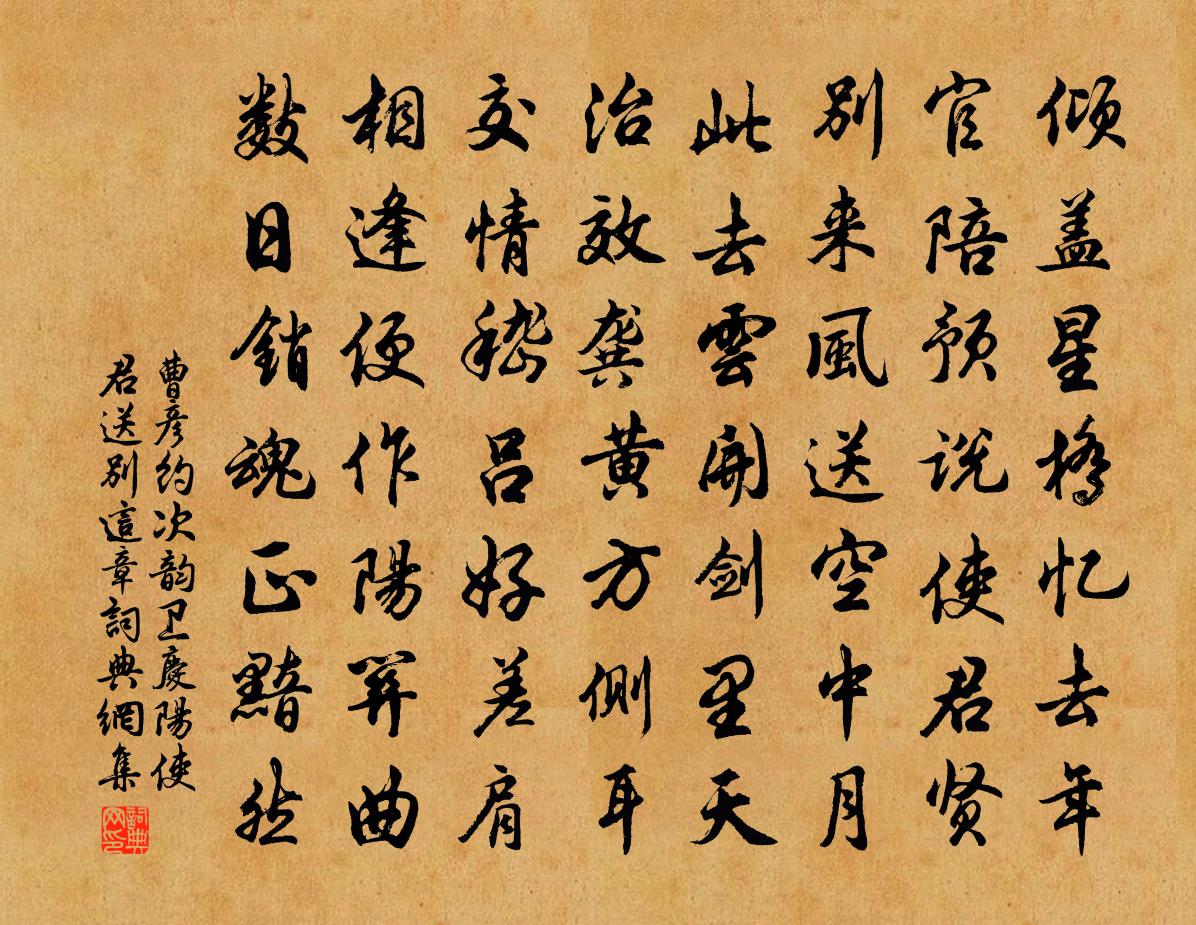 倾盖星橋忆去年
官陪预说使君贤
别来風送空中月
此去雲開剑里天
治效龚黄方侧耳
交情嵇吕好差肩
相逢便作陽关曲
数日銷魂正黯然
曹彦约次韵卫慶陽使
君送别這章詞典網集
詞典
网印